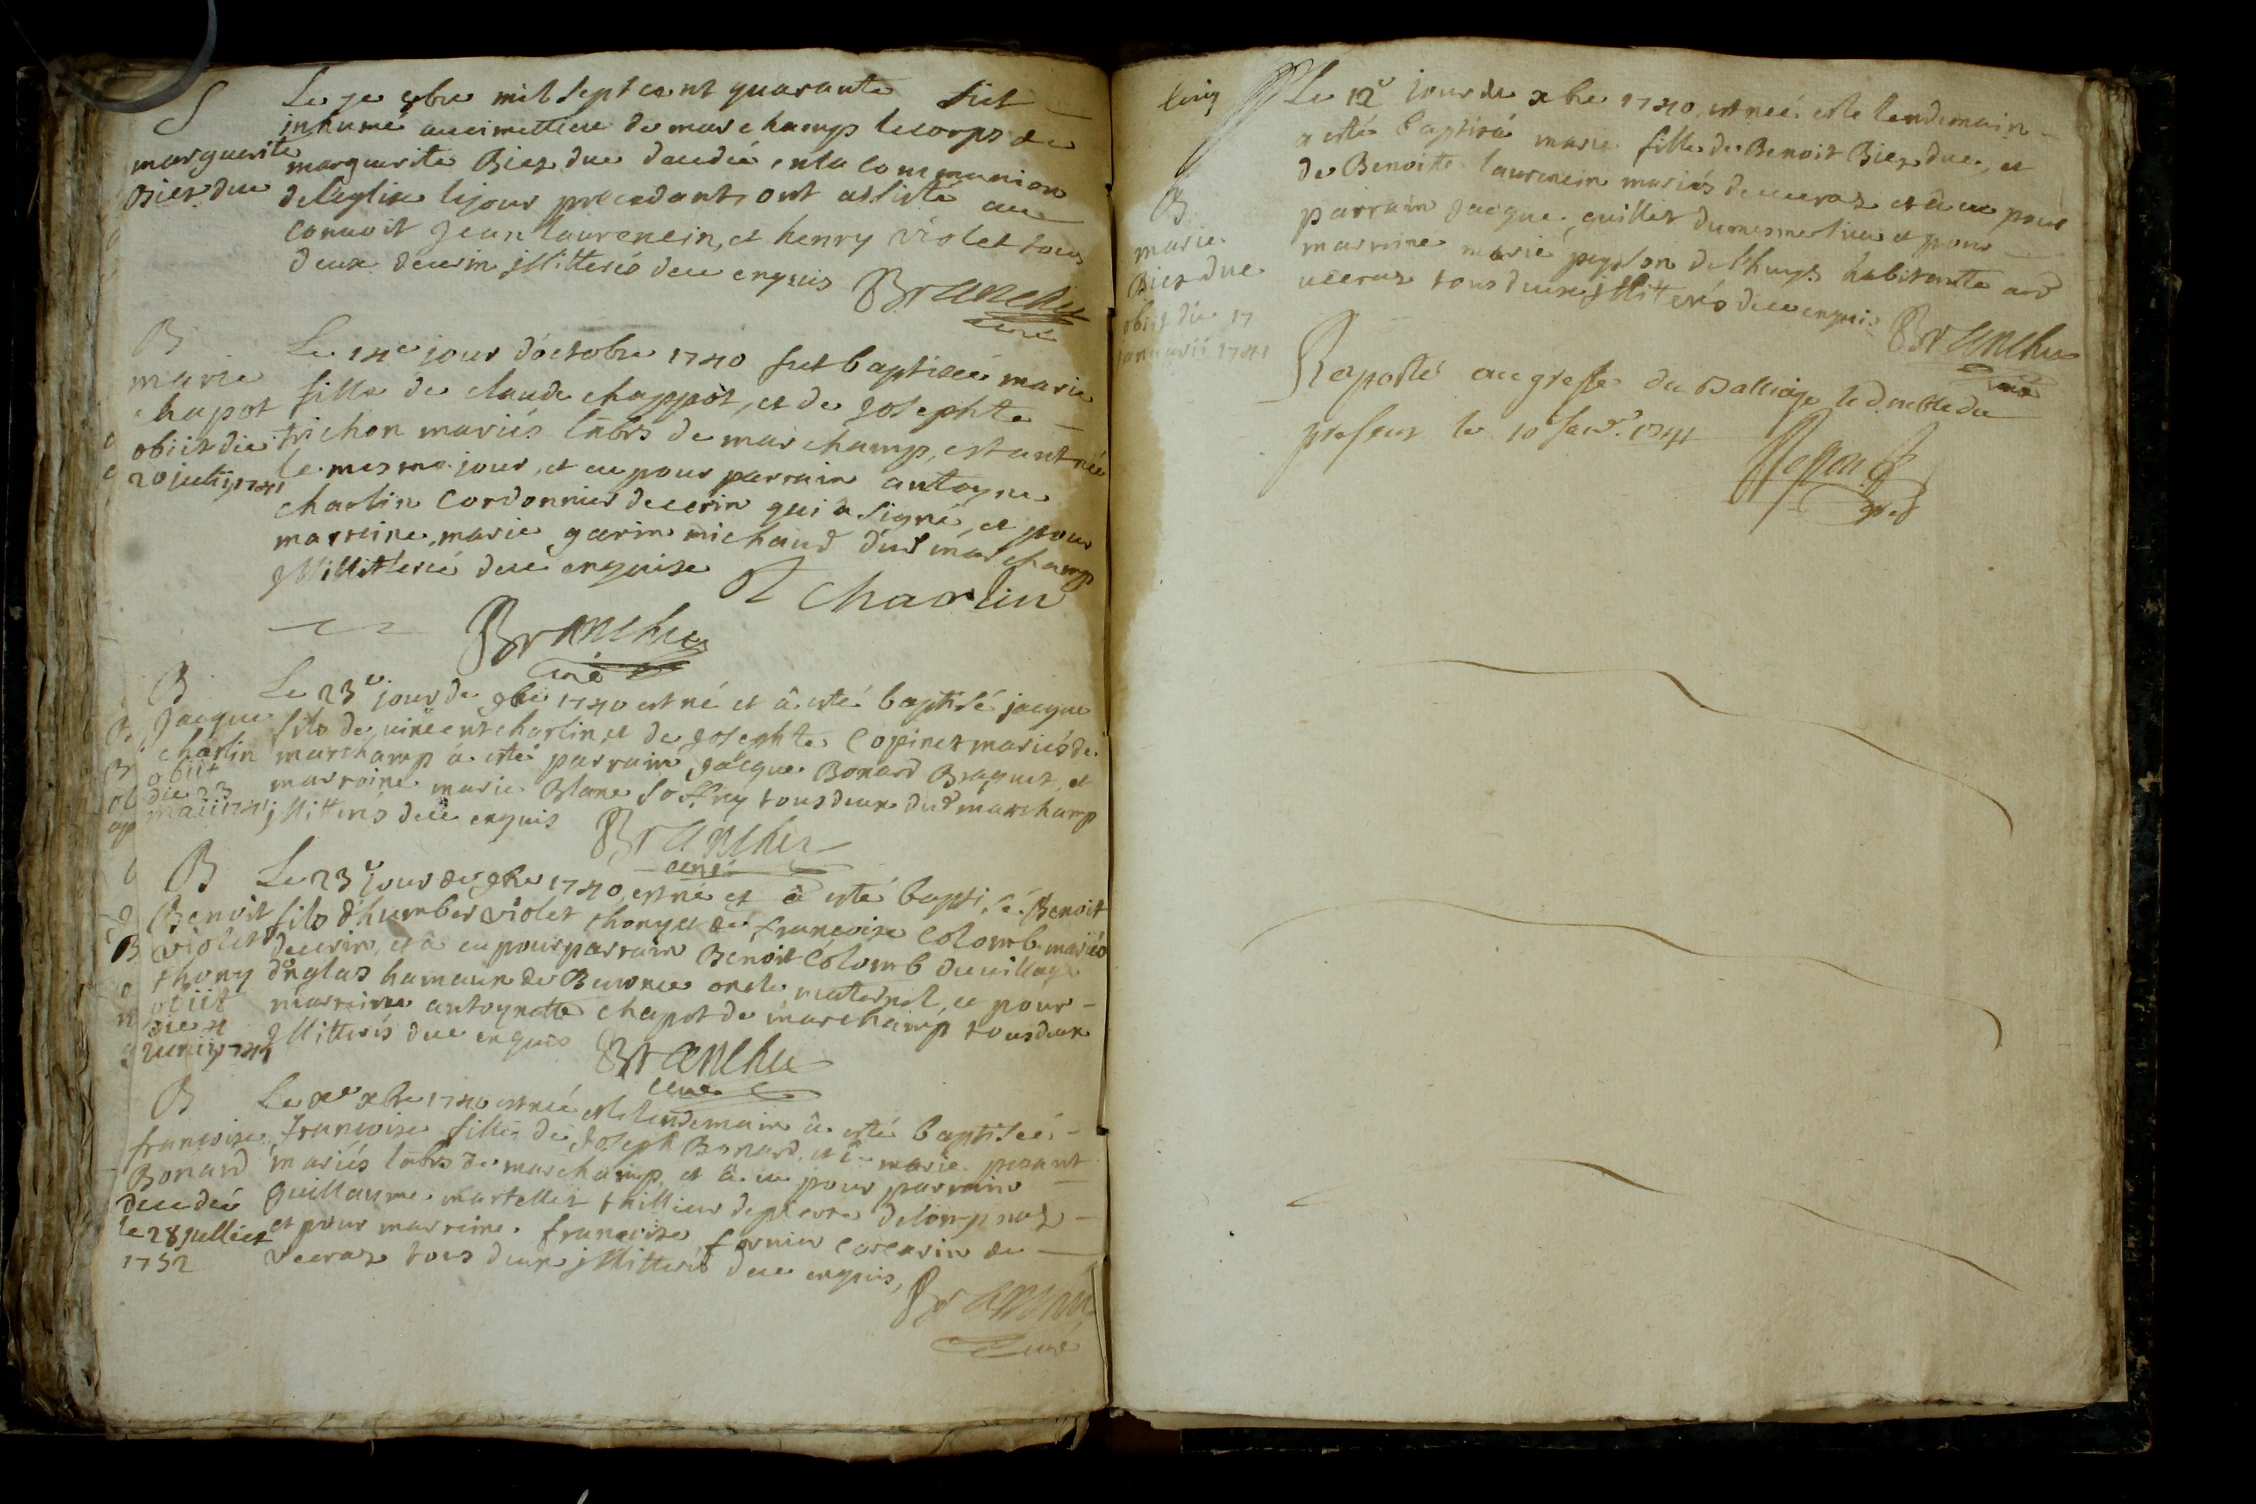 S
marguerite
Biez due
Le 7e 9bre mil sept cent quarante fut
inhumé au cimettiere de marchamp le corps de
marguerite Biez due decedée en la communion
de l'eglise le jour precedant, ont assisté au
convoit Jean laurencin, et henry violet tous
deux de cerin illitterés de ce enquis Branche
curé
B
marie
chapot
obiit die
20 julij 1741
Le 14e jour d'octobre 1740 fut baptisée marie
fille de claude chappot, et de Josephte
trichon mariés labrs de marchamp, estant née
le mesme jour, et eu pour parrain antoyne
charlin cordonnier de cerin qui a signé, et pour
marreine, marie garin michaud dud marchamp
illitterée de ce enquise A charlin
Branche
curé
B
Jacque
charlin
obiit
die 23
maii 1741
Le 23e jour de 9bre 1740 est né et à esté baptisé jacque
fils de vincent charlin, et de Josephte Copinet mariés de
marchamp à esté parrain Jacque Bonard Braquet, et
marraine marie Blanc soffrey tous deux dud marchamp
illitterés de ce enquis Branche
curé
B
Benoit
violet
thony
obiit
die 4
Junij 1741
Le 23e jour de 9bre 1740, est né et à esté baptisé Benoit
fils d'humber violet thony et de francoise Colomb mariés
de cerin, et à eu pour parrain Benoit Colomb du village
d'englas hameau de Buronce oncle maternel, et pour
marraine antoynette chapot de marchamp tous deux
illitterés de ce enquis Branche
curé
B
francoise
Bonard
decedée
le 28 juillet
1752
Le xe xbre 1740 est née et le lendemain à esté baptisée
francoise fille de Joseph Bonard, et de marie pezant
mariés labrs de marchamp, et à eu pour parrain
Guillaume martellet tallieur de pierre de lompnaz
et pour marreine francoise fornier coccarin de
veeraz tous deux illitterés de ce enquis, Branche
curé
cinq
B
marie
Biez due
obiit die 17
januarii 1741
Le 12e jour de xbre 1740, est née et le lendemain
a esté baptisé marie fille de Benoit Biez due, et
de Benoitte laurencin mariés de veeraz et à eu pour
parrain Jacque cuillet du mesme lieu et pour
marreine marie peysson de lhuys habitante aud
veeraz tous deux illitterés de ce enquis Branche
curé
Raporté au greffe du Balliage le double du
present le 10 1741